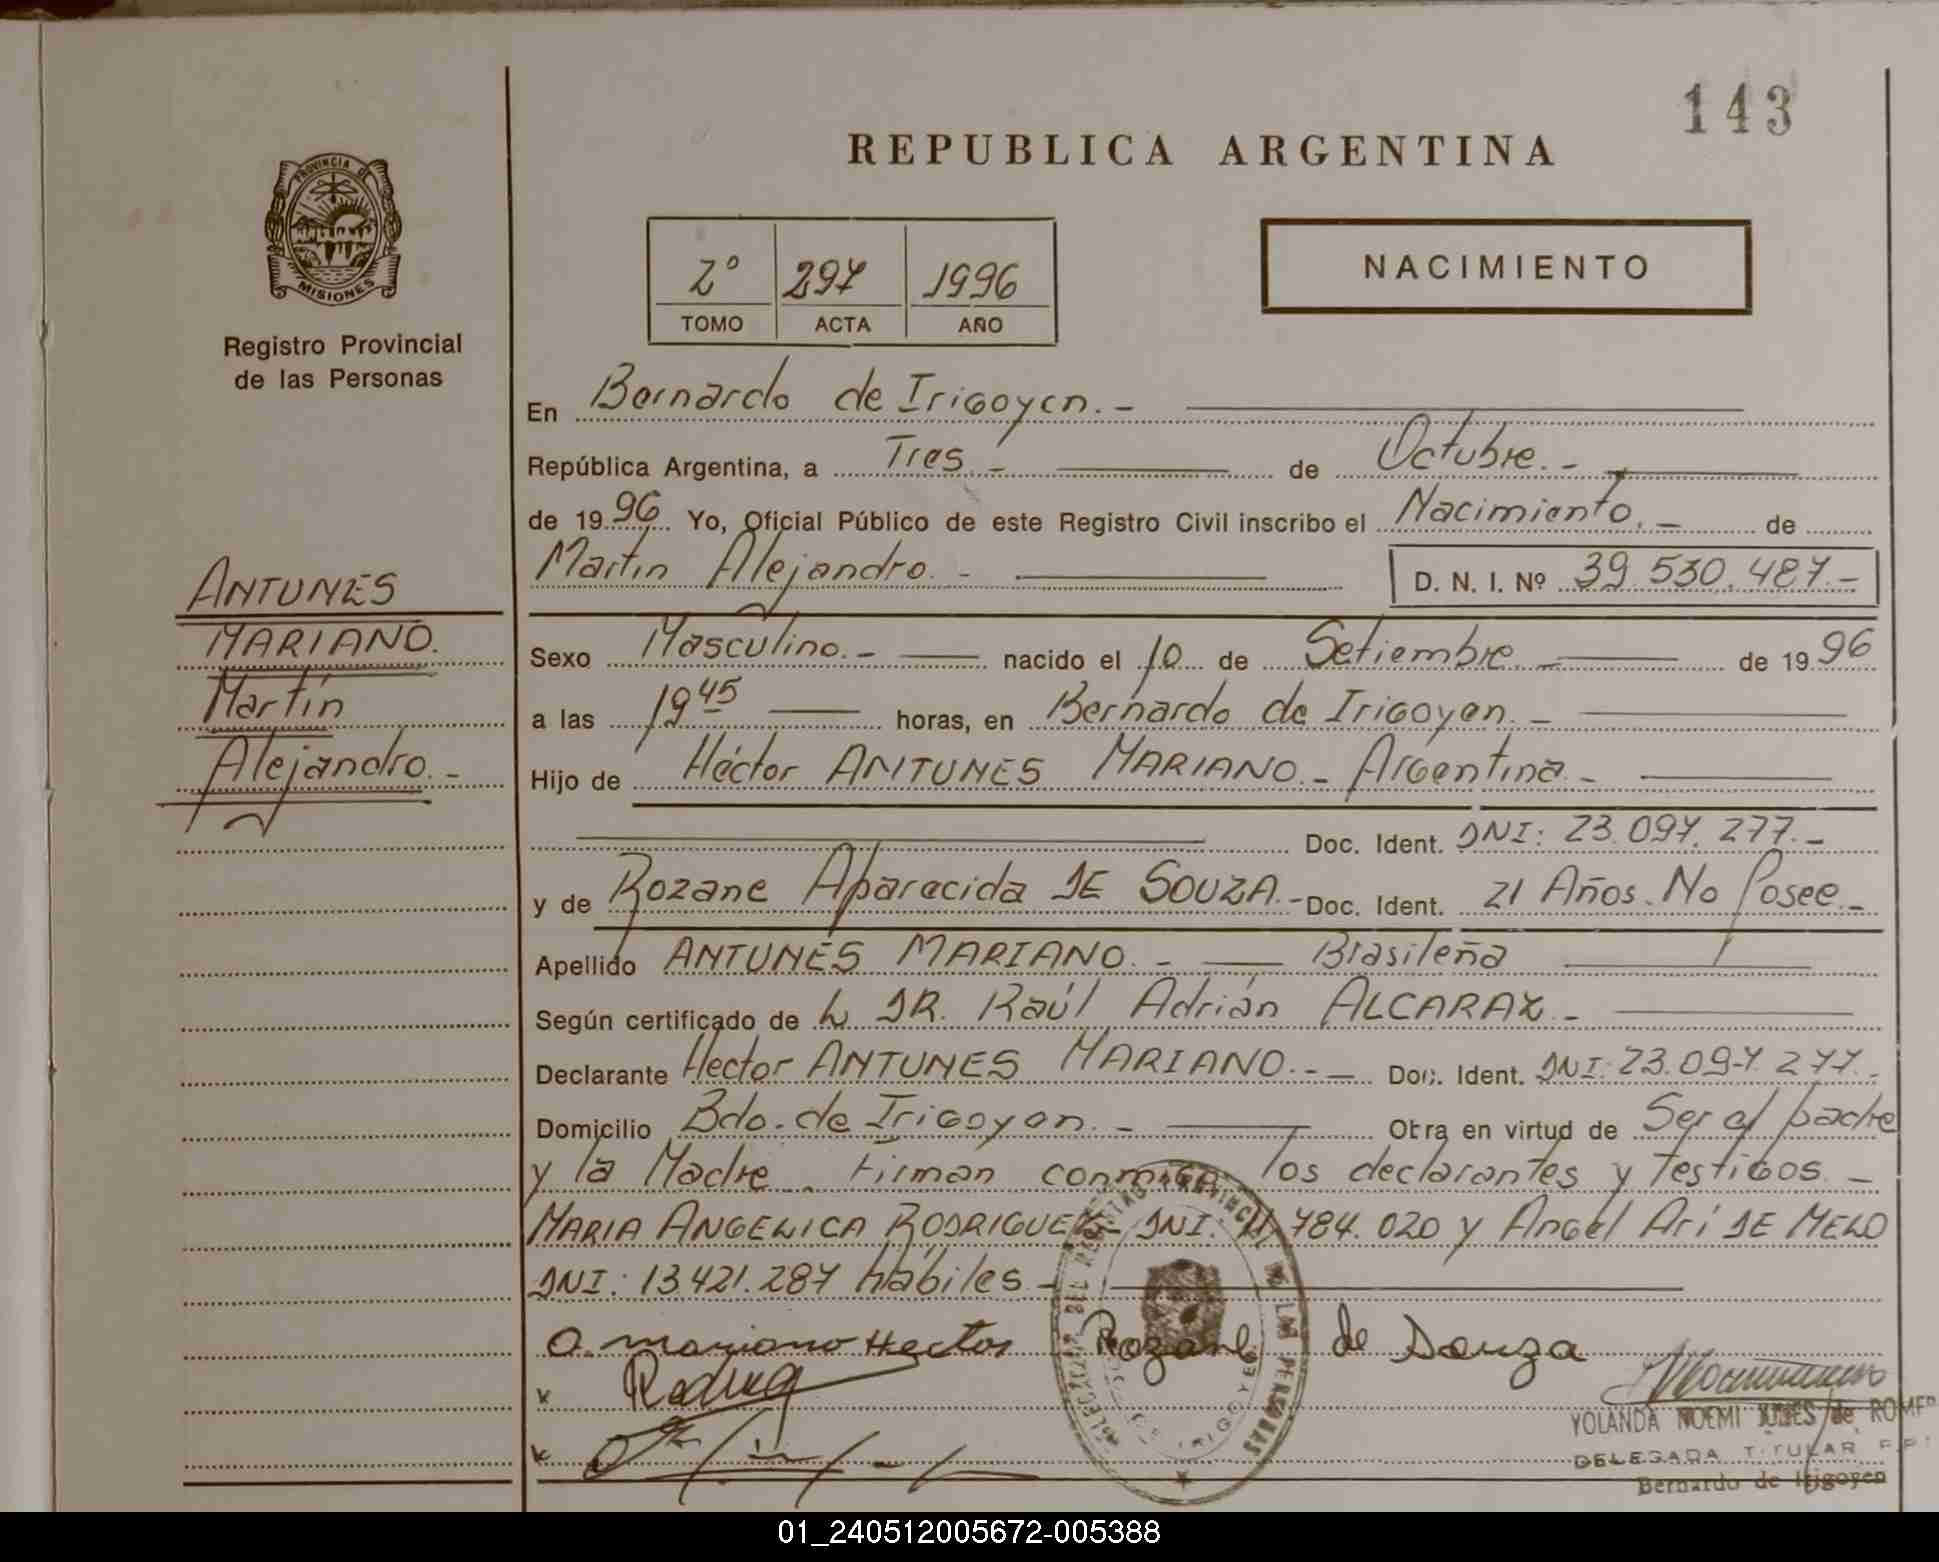 143
REPUBLICA ARGENTINA
PROVINCIA DE
MISIONES
Registro Provincial
de las Personas
2º 297 1996
TOMO ACTA AÑO
NACIMIENTO
En Bernardo de Irigoyen.-
República Argentina, a Tres.- de Octubre.-
de 1996 Yo, Oficial Público de este Registro Civil inscribo el Nacimiento.- de
Martín Alejandro.- D. N. I. Nº 39.530.487.-
ANTUNES
MARIANO.
Martín
Alejandro.-
Sexo Masculino.- nacido el 10 de Setiembre.- de 1996
a las 19 45 horas, en Bernardo de Irigoyen.-
Hijo de Héctor ANTUNES MARIANO.- Argentina.-
Doc. Ident. DNI: 23.097.277.-
y de Rozane Aparecida DE SOUZA.- Doc. Ident. 21 Años. No Posee.-
Apellido ANTUNES MARIANO.- Brasileña
Según certificado de L DR. Raúl Adrián ALCARAZ.-
Declarante Hector ANTUNES MARIANO.-- Doc. Ident. DNI: 23.097.277.-
Domicilio Bdo. de Irigoyen.- Obra en virtud de Ser el padre
y la Madre. Firman conmigo los declarantes y testigos.-
MARIA ANGELICA RODRIGUEZ DNI: 784.020 y Angel Arí DE MELO
DNI: 13.421.287 hábiles.-
a. mariano Hector Rozane de Souza
YOLANDA NOEMI de ROMER
DELEGADA TITULAR
Bernardo de Irigoyen
01_240512005672-005388